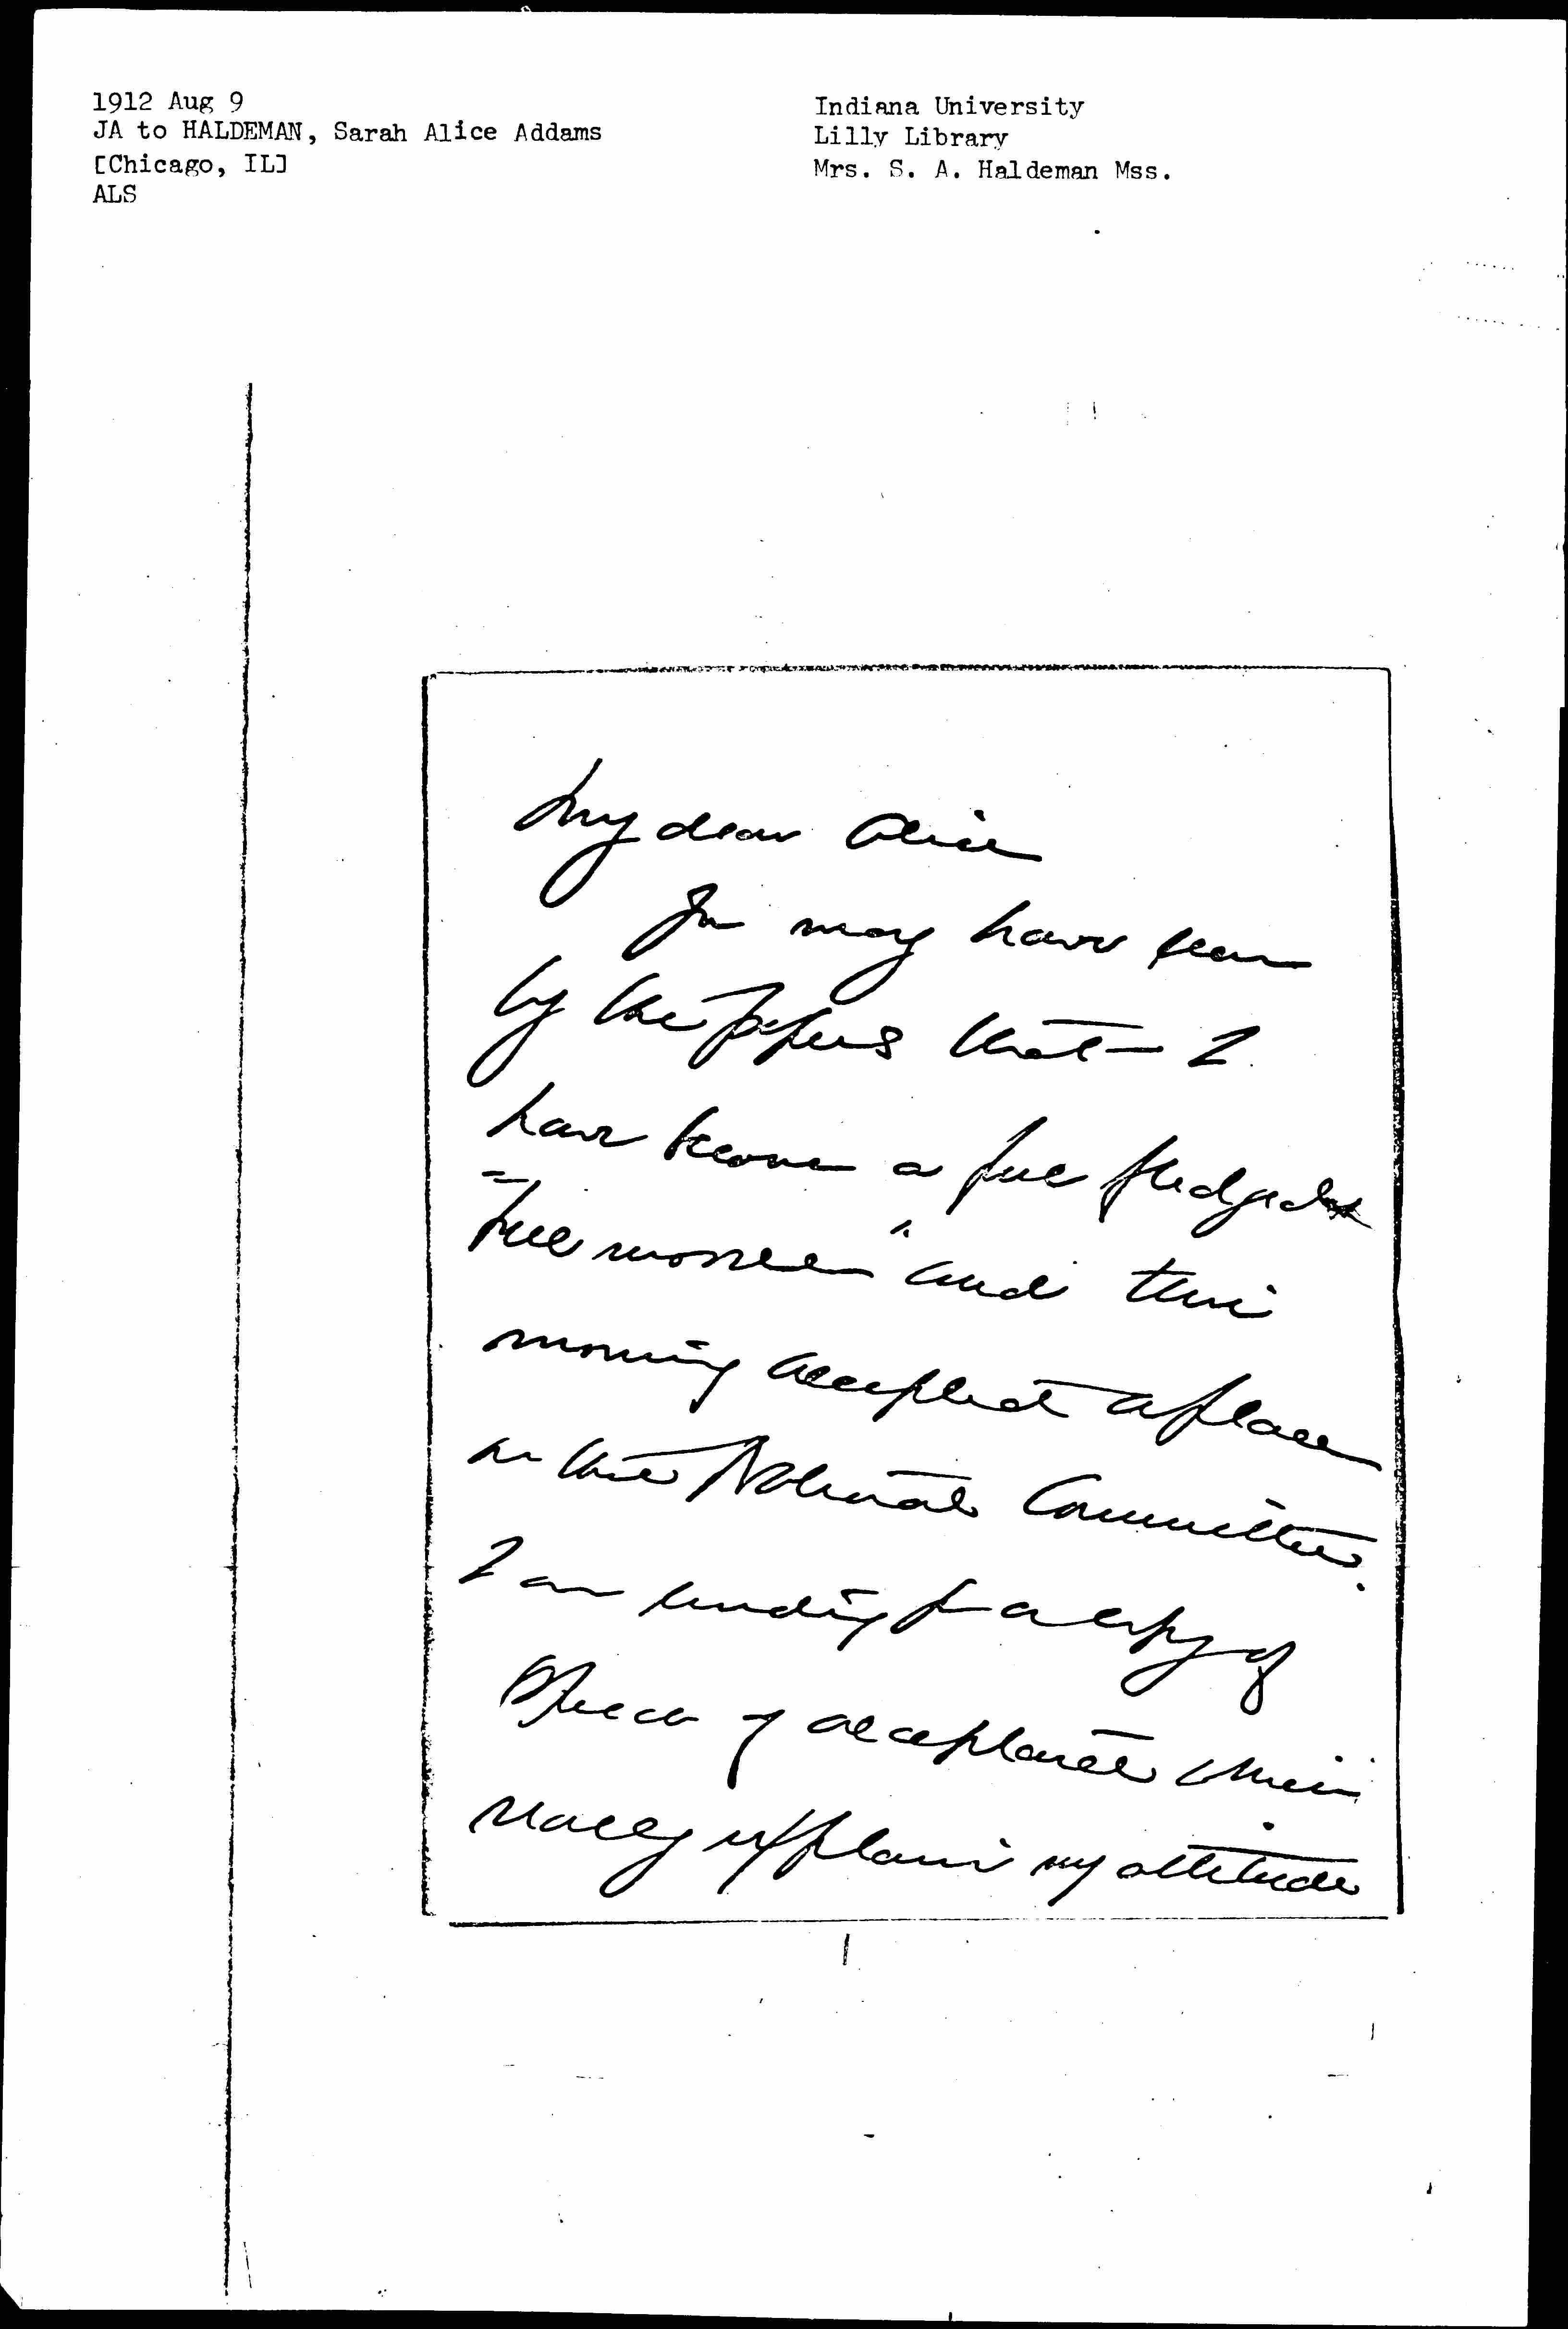 1912 Aug 9
JA to HALDEMAN, Sarah Alice Addams
[Chicago, IL]
ALS
Indiana University
Lilly Library
Mrs. S. A. Haldeman Mss.
My dear Alice
You may have seen
by the papers that I
have become a full fledged
"bull mooser" and this
morning accepted a place
on the National Committee.
I am sending you a copy of
Speech of acceptance which
really explains my attitude